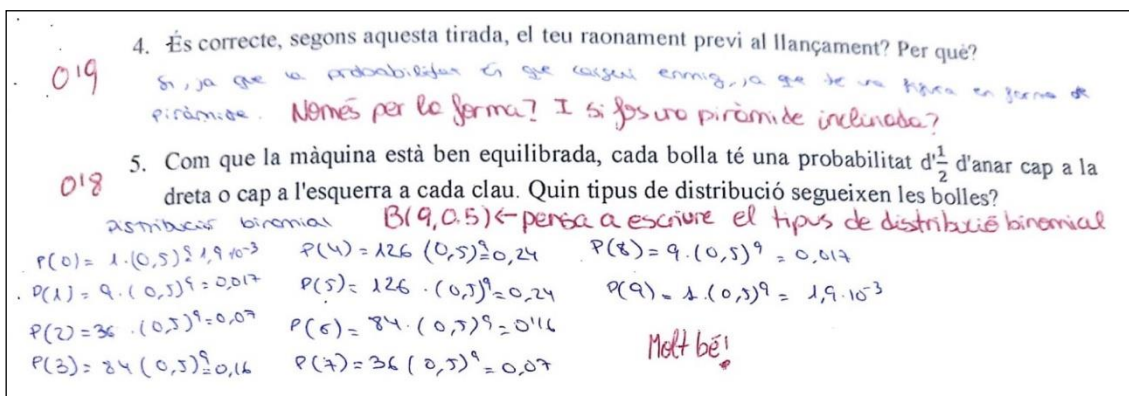 4. És correcte, segons aquesta tirada, el teu raonament previ al llançament? Per què?
0'9
Si, ja que la probabilitat és que caigui enmig, ja que te una figura en forma de
piràmide. Només per la forma? I si fos una piràmide inclinada?
5. Com que la màquina està ben equilibrada, cada bolla té una probabilitat d'1/2 d'anar cap a la
0'8
dreta o cap a l'esquerra a cada clau. Quin tipus de distribució segueixen les bolles?
Distribució binomial B(9,0.5) ← pensa a escriure el tipus de distribució binomial
P(0) = 1·(0,5)⁹ = 1,9·10⁻³ P(4) = 126 (0,5)⁹ = 0,24 P(8) = 9·(0,5)⁹ = 0,017
P(1) = 9·(0,5)⁹ = 0,017 P(5) = 126·(0,5)⁹ = 0,24 P(9) = 1·(0,5)⁹ = 1,9·10⁻³
P(2) = 36·(0,5)⁹ = 0,07 P(6) = 84·(0,5)⁹ = 0'16
P(3) = 84 (0,5)⁹ = 0,16 P(7) = 36 (0,5)⁹ = 0,07 Molt bé!